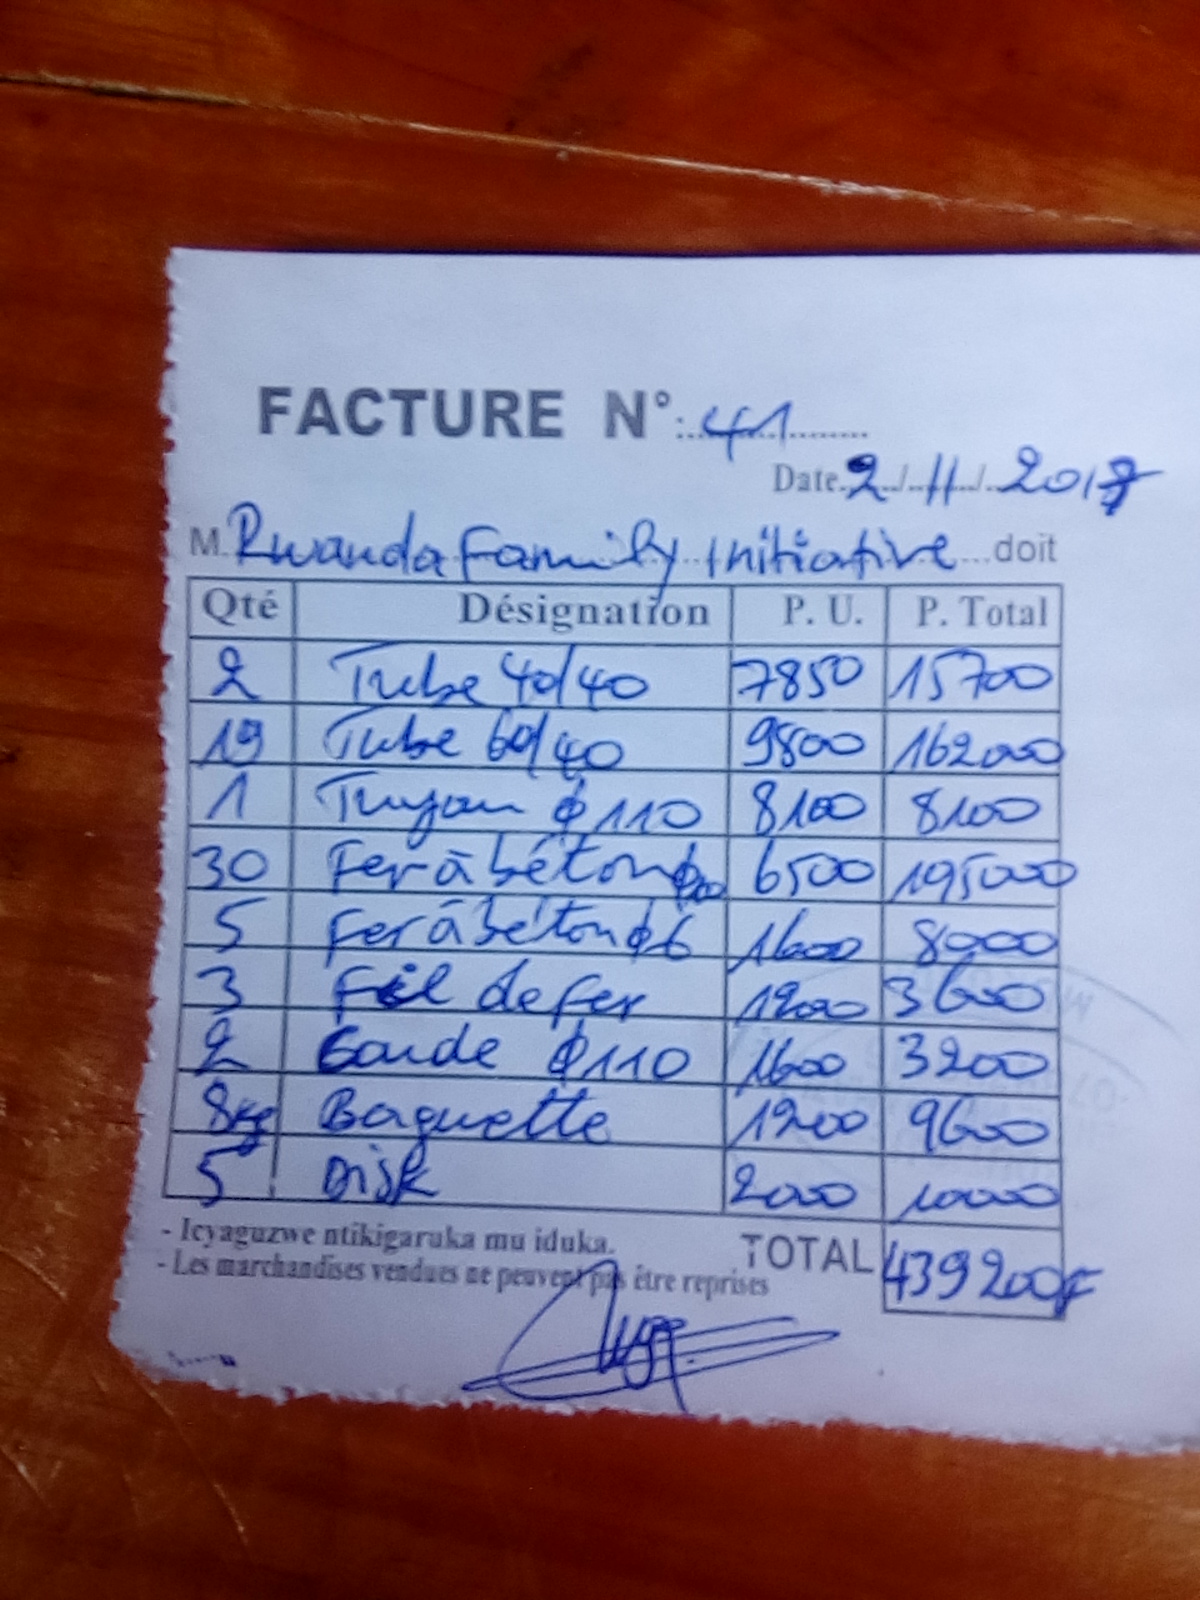 FACTURE N°: 41
Date 2/11/2017
M. Rwanda Family Initiative doit
Qté Désignation P. U. P. Total
2 Tube 40/40 7850 15700
19 Tube 60/40 9800 162000
1 Tuyau ϕ 110 8100 8100
30 Fer à béton 6500 195000
5 Fer à béton ϕ6 1600 8000
3 Fil de fer 1200 3600
2 Coude ϕ110 1600 3200
8kg Baguette 1200 9600
5 Disk 2000 10000
- Icyaguzwe ntikigaruka mu iduka.
- Les marchandises vendues ne peuvent pas être reprises
TOTAL 439200F